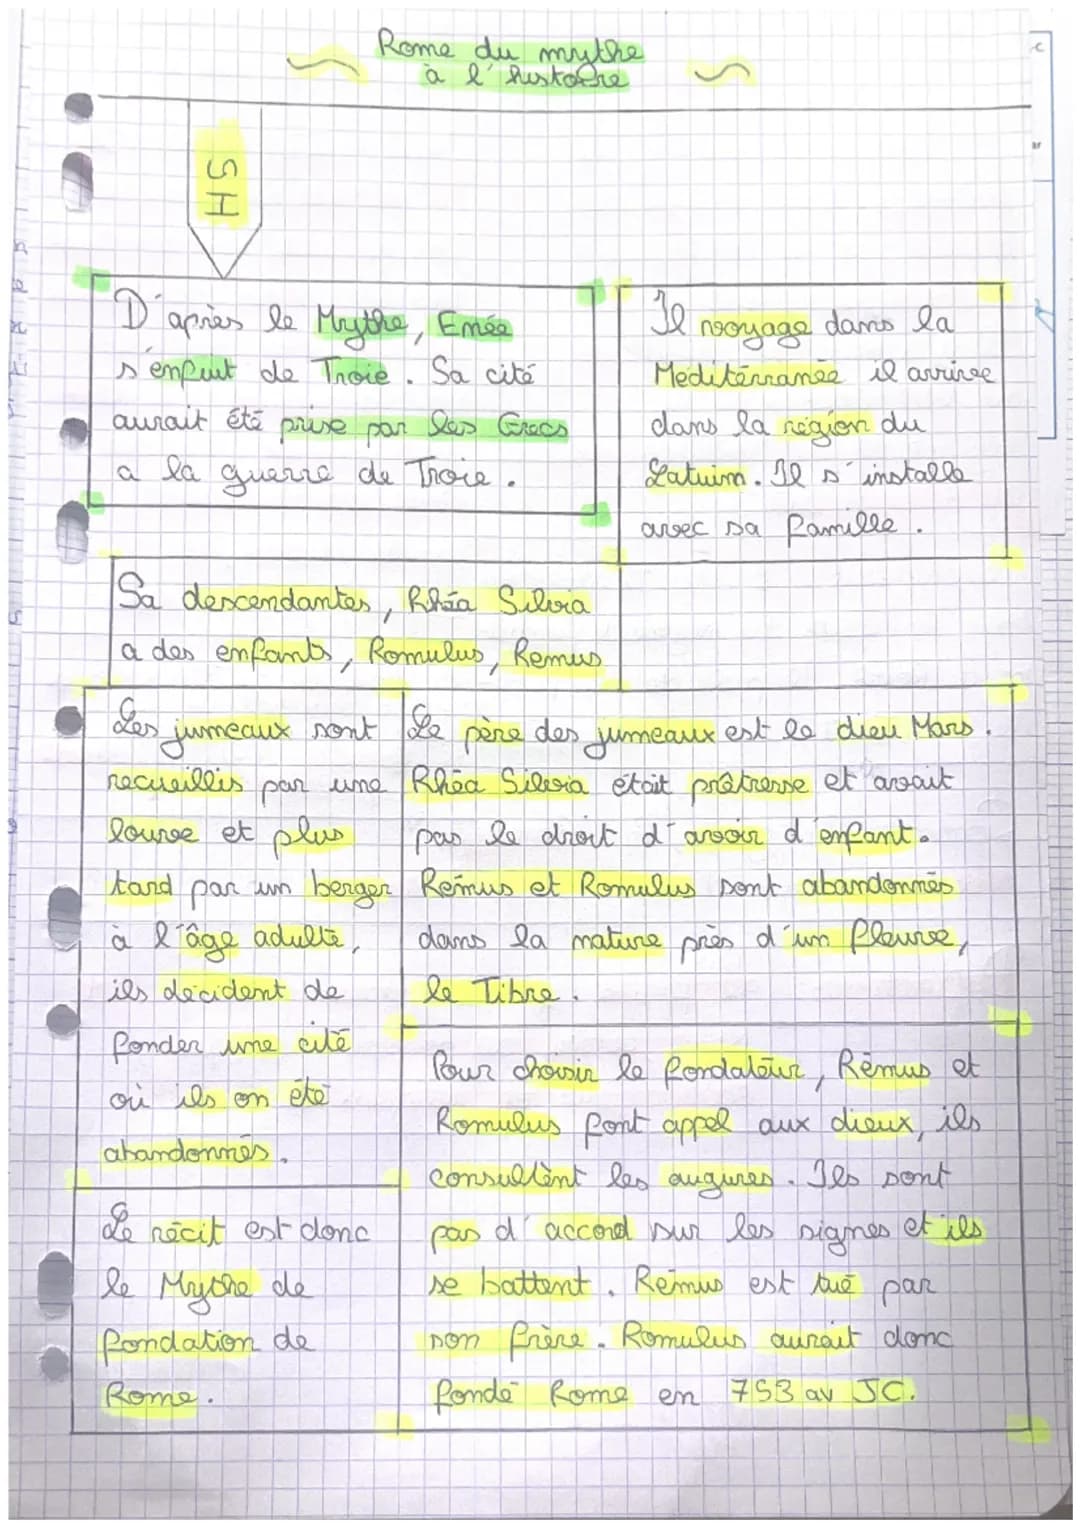 Rome du mythe
à l'histoire
SH
D'après le Mythe, Enée
s'enfuit de Troie. Sa cité
aurait été prise par les Grecs
a la guerre de Troie.
Il voyage dans la
Mediterranée il arrivee
dans la région du
Latuim. Il s'installe
avec sa famille.
Sa descendantes, Rhéa Silvia
a des enfants, Romulus, Remus
Les jumeaux sont
recueillis par une
louve et plus
tard par un berger
à l'âge adulte,
ils décident de
fonder une cité
où ils on été
abandonnés.
Le récit est donc
le Mythe de
fondation de
Rome.
Le père des jumeaux est le dieu Mars.
Rhéa Silvia était prêtresse et avait
pas le droit d'avoir d'enfant.
Rémus et Romulus sont abandonnés
dans la nature près d'un fleuve,
le Tibre.
Pour choisir le fondateur, Rémus et
Romulus font appel aux dieux, ils
consultent les augures. Ils sont
pas d'accord sur les signes et ils
se battent. Rémus est tué par
son frère. Romulus aurait donc
fondé Rome en 753 av JC.